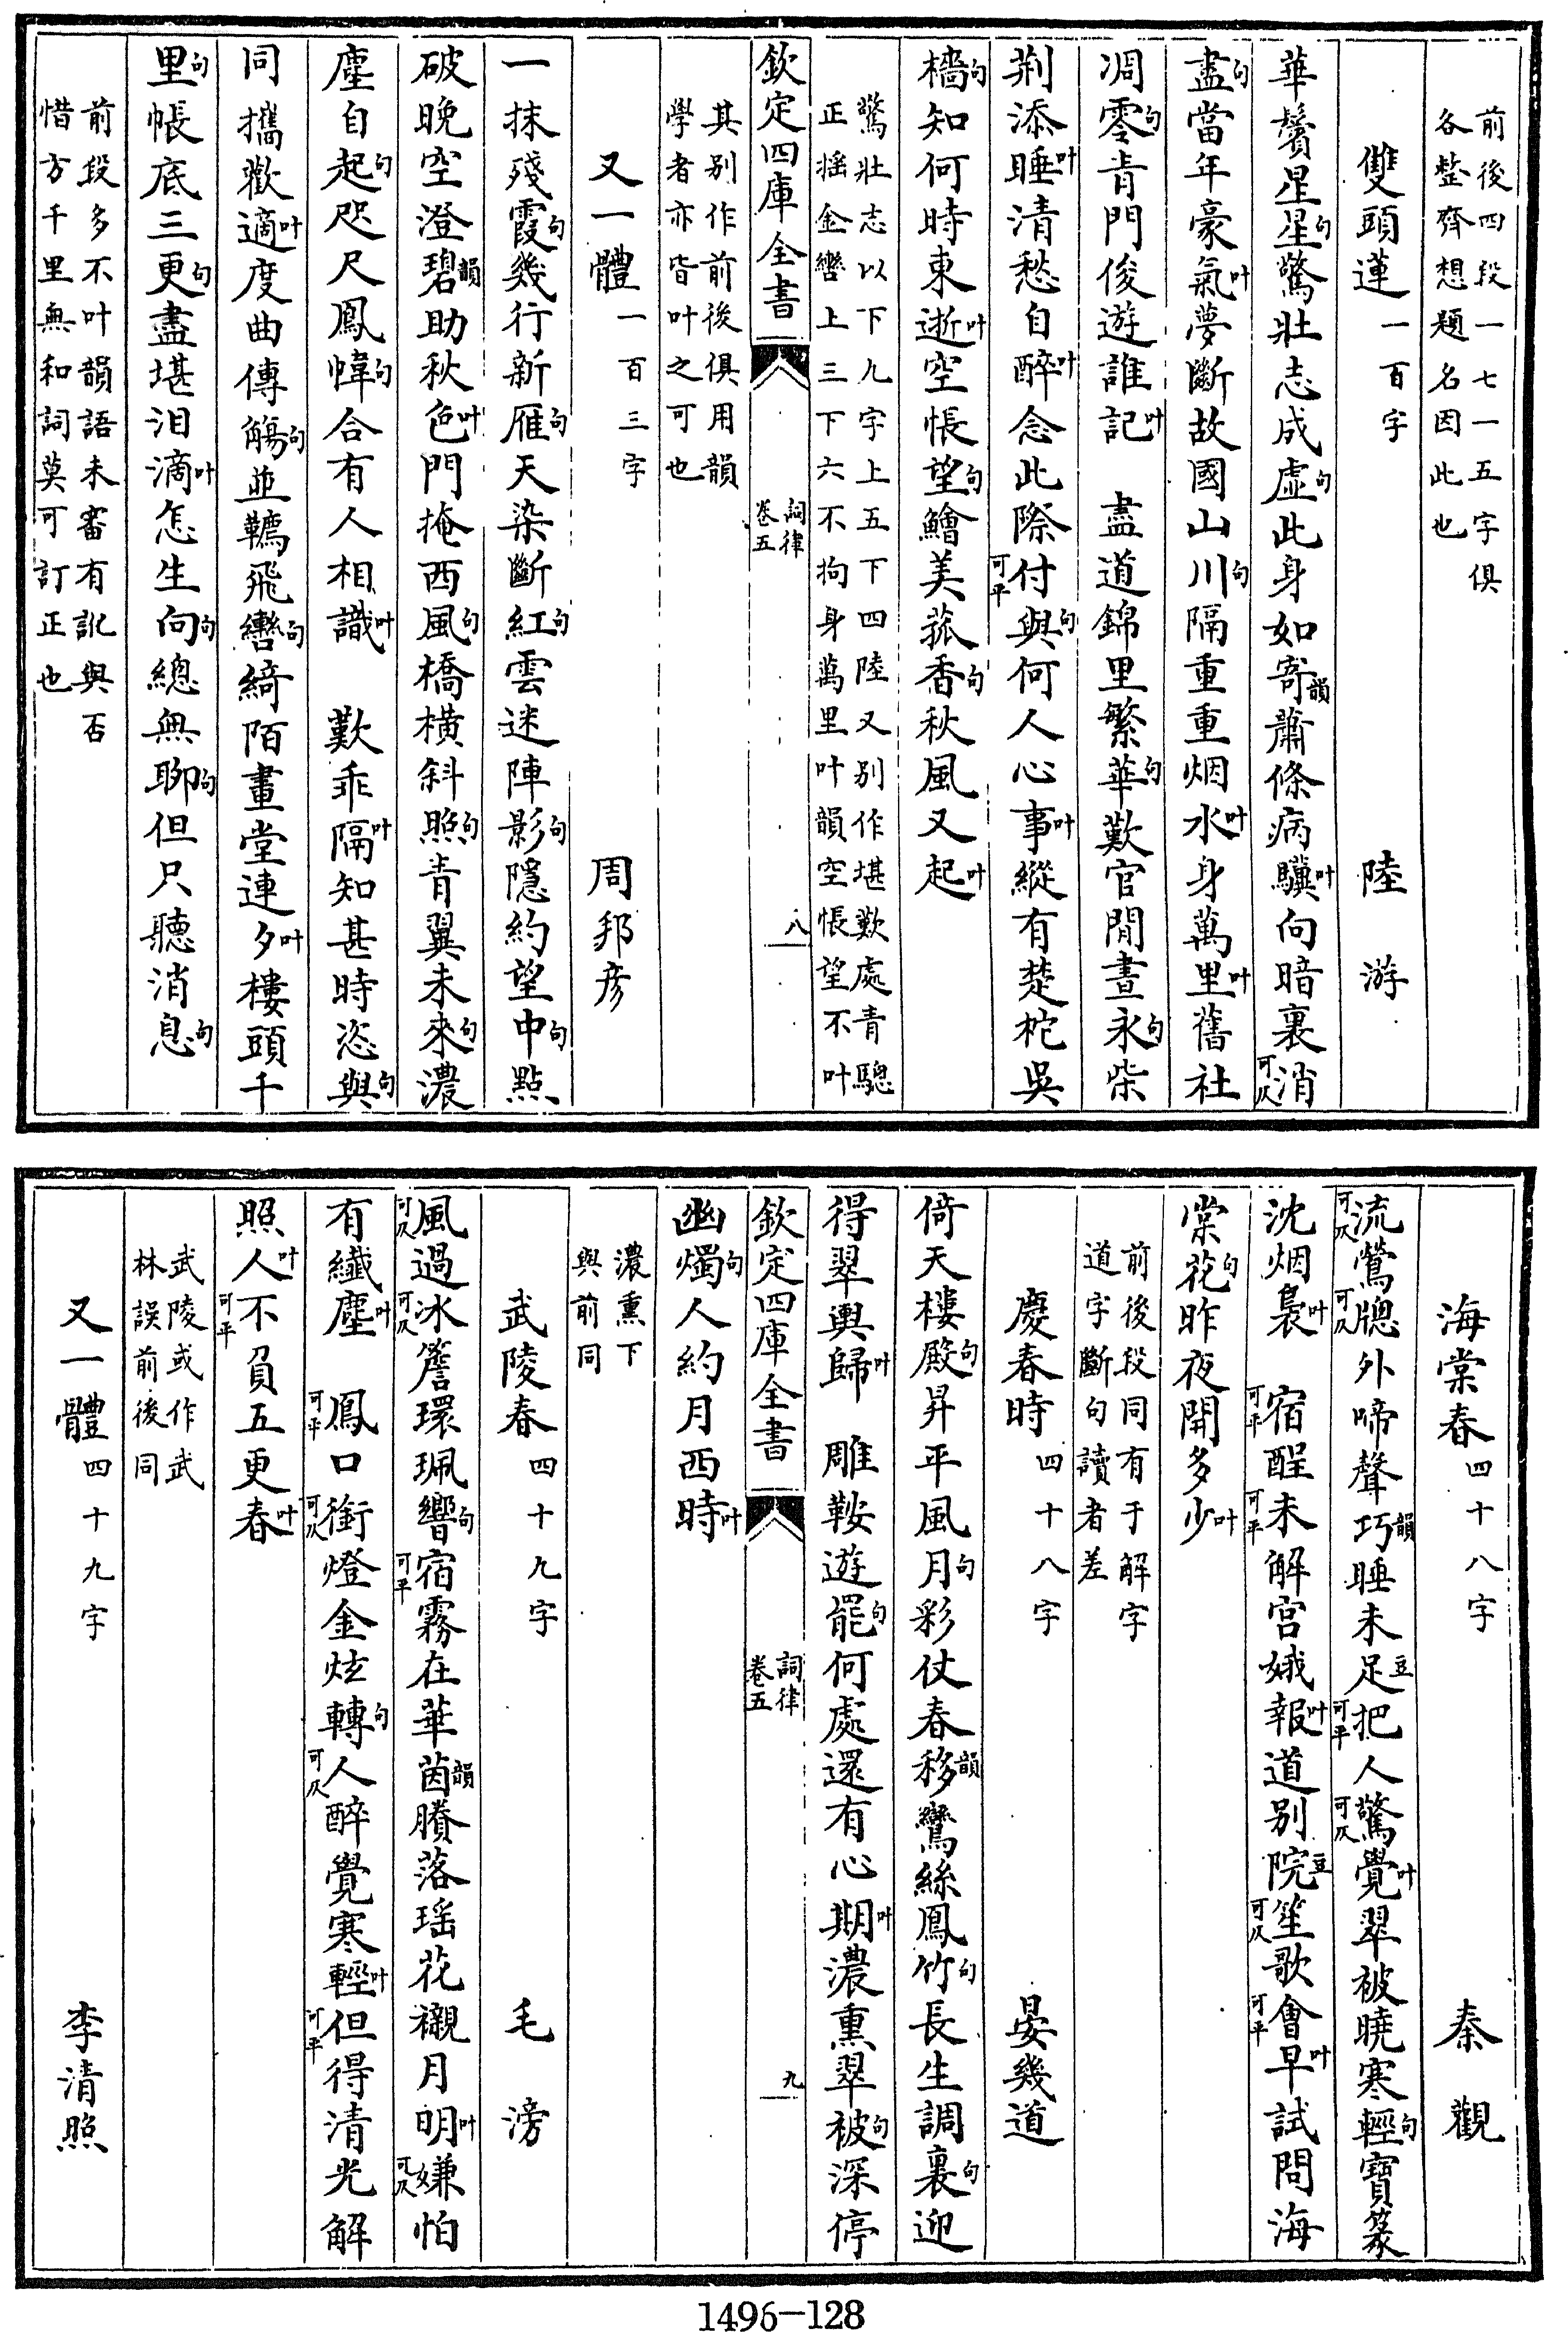 前後四段一七一五字俱
各整齊想題名因此也
雙頭蓮一百字 陸游
華鬢星星句驚壯志成虛句此身如寄韻蕭條病驥叶向暗裏消可仄
盡句當年豪氣叶夢斷故國山川句隔重重烟水叶身萬里叶舊社
凋零句青門俊遊誰記叶 盡道錦里繁華句歎官閒晝永句柴
荆添睡叶清愁自醉叶念此際付可平與句何人心事叶縱有楚柁吳
檣句知何時東逝叶空悵望句鱠美菰香句秋風又起叶
驚壯志以下九字上五下四陸又别作堪歎處青驄
正揺金轡上三下六不拘身萬里叶韻空悵望不叶
欽定四庫全書 詞律卷五 八
其别作前後俱用韻
學者亦皆叶之可也
又一體一百三字 周邦彦
一抹殘霞句幾行新雁句天染斷紅句雲迷陣影句隱約望中句點
破晚空澄碧韻助秋色叶門掩西風句橋橫斜照句青翼未來句濃
塵自起句咫尺鳳幃句合有人相識叶 歎乖隔叶知甚時恣與句
同攜歡適叶度曲傳觴句並韉飛轡句綺陌畫堂連夕叶樓頭千
里句帳底三更句盡堪泪滴叶怎生向句總無聊句但只聽消息句
前段多不叶韻語未審有訛與否
惜方千里無和詞莫可訂正也
海棠春四十八字 秦觀
流可仄鶯牕可仄外啼聲巧韻睡未足豆把可平人驚可仄覺叶翠被曉寒輕句寶篆
沈烟裊叶 宿可平酲未可平解宫娥報叶道别院豆笙可仄歌會可平早叶試問海
棠花句昨夜開多少叶
前後段同有于解字
道字斷句讀者差
慶春時四十八字 晏幾道
倚天樓殿句昇平風月句彩仗春移韻鸞絲鳳竹句長生調裏句迎
得翠輿歸叶 雕鞍遊罷句何處還有心期叶濃熏翠被句深停
欽定四庫全書 詞律卷五 九
幽燭句人約月西時叶
濃熏下
與前同
武陵春四十九字 毛滂
風可仄過冰可仄簷環珮響句宿可平霧在華茵韻賸落瑶花襯月明叶嫌可仄怕
有纖塵叶 鳳可平口銜可仄燈金炫轉句人可仄醉覺寒輕叶但可平得清光解
照人叶不可平負五更春叶
武陵或作武
林誤前後同
又一體四十九字 李清照
1496—128